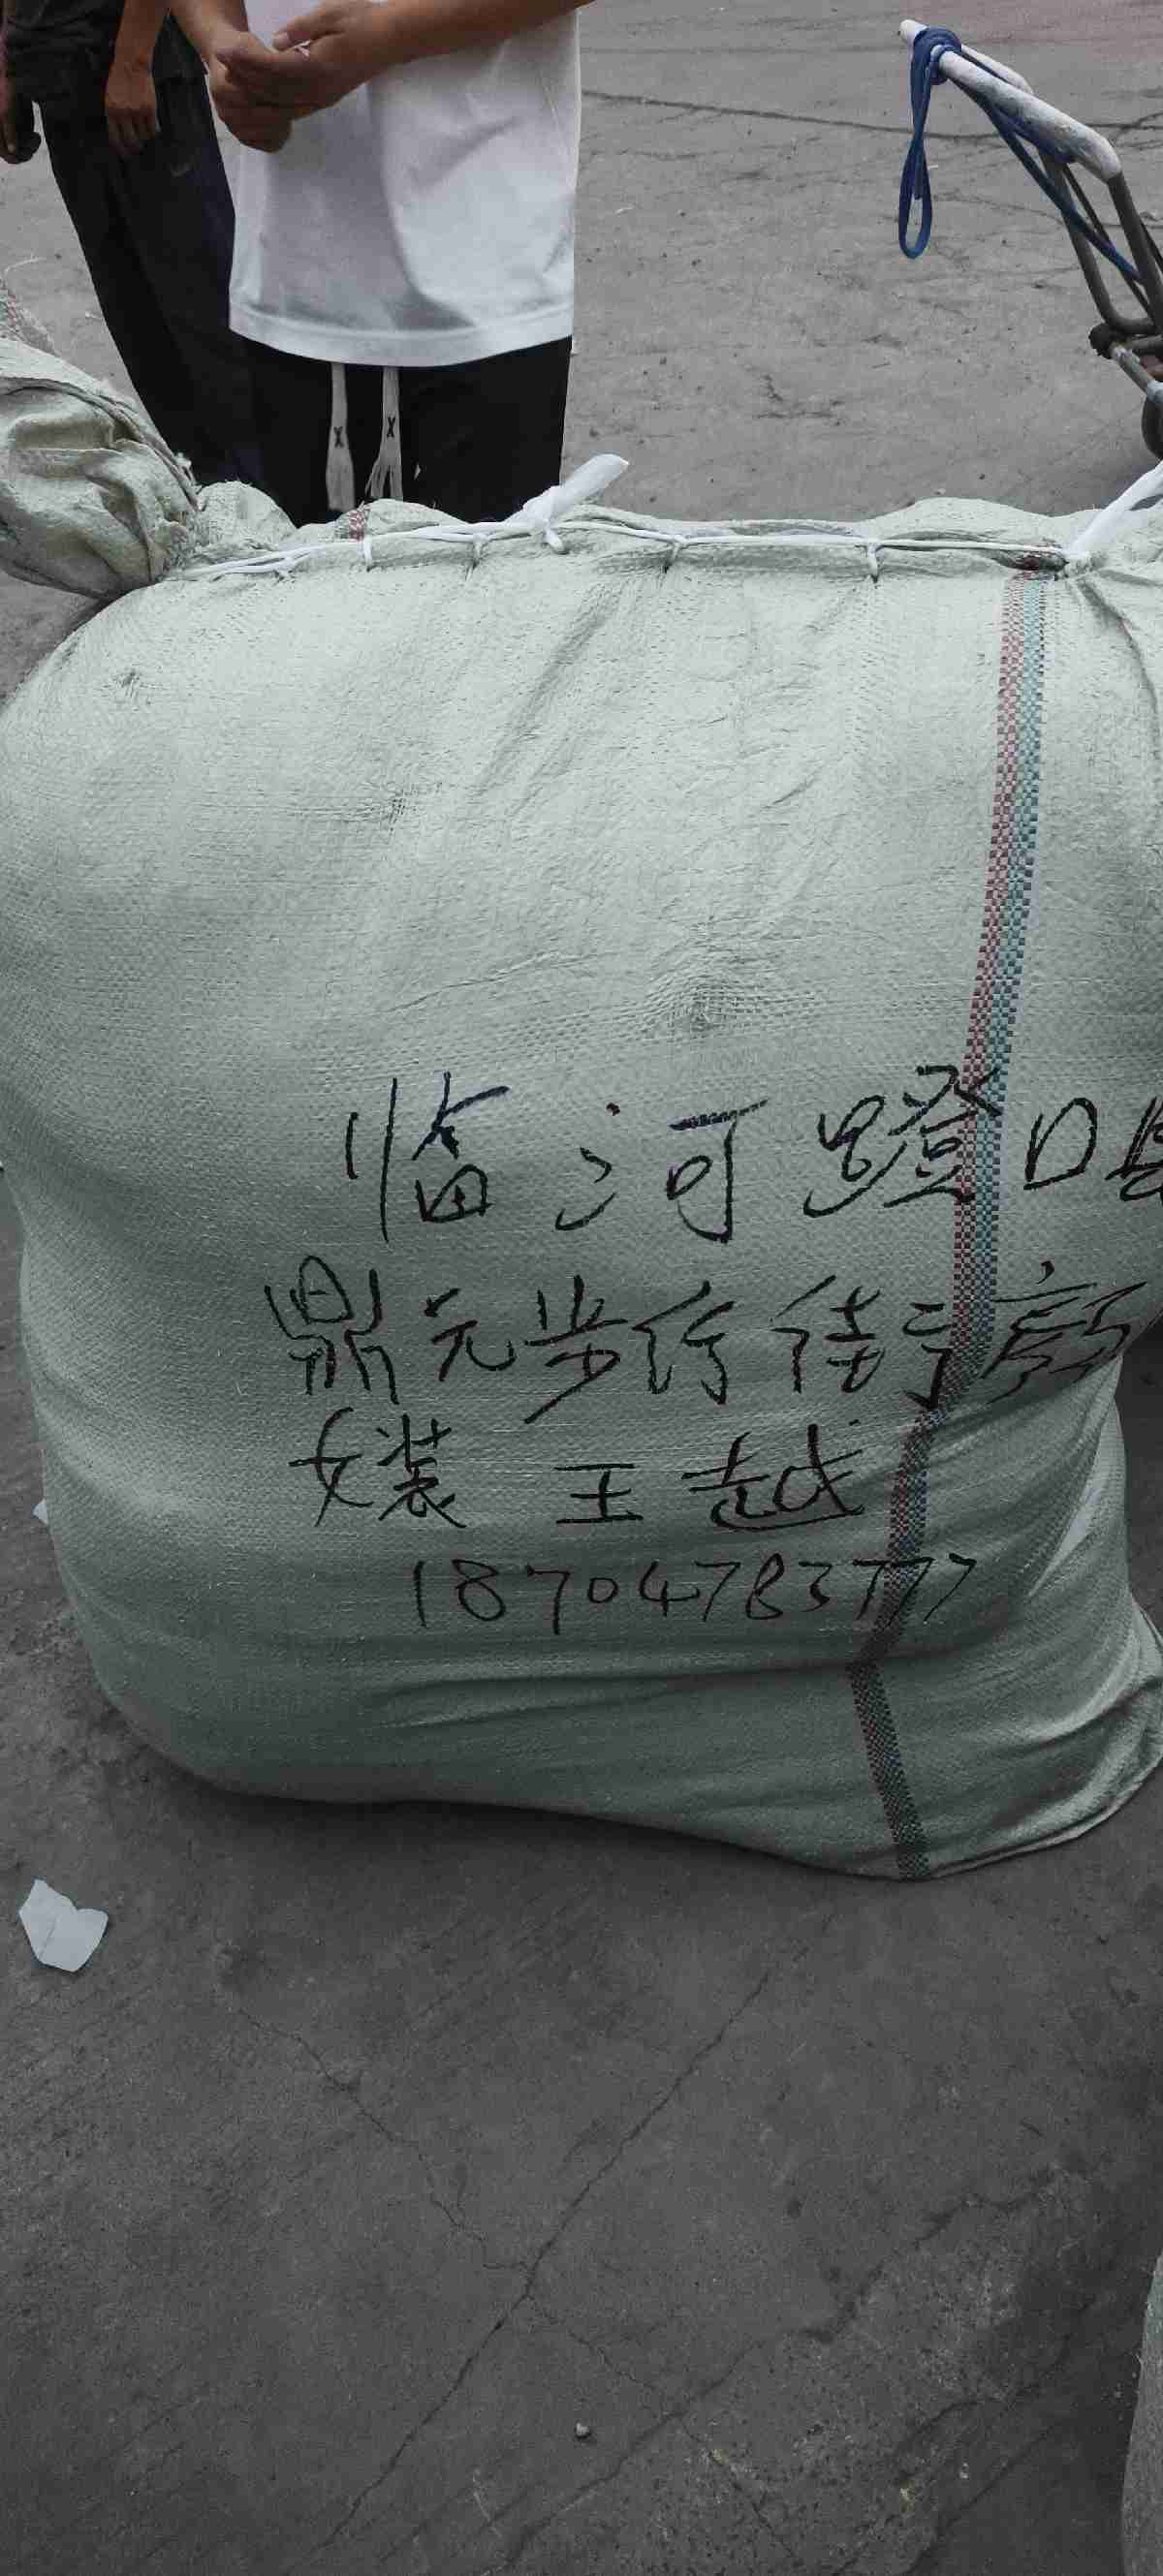 临河蹬口县
鼎元步行街于颜
女装 王越
18704783777